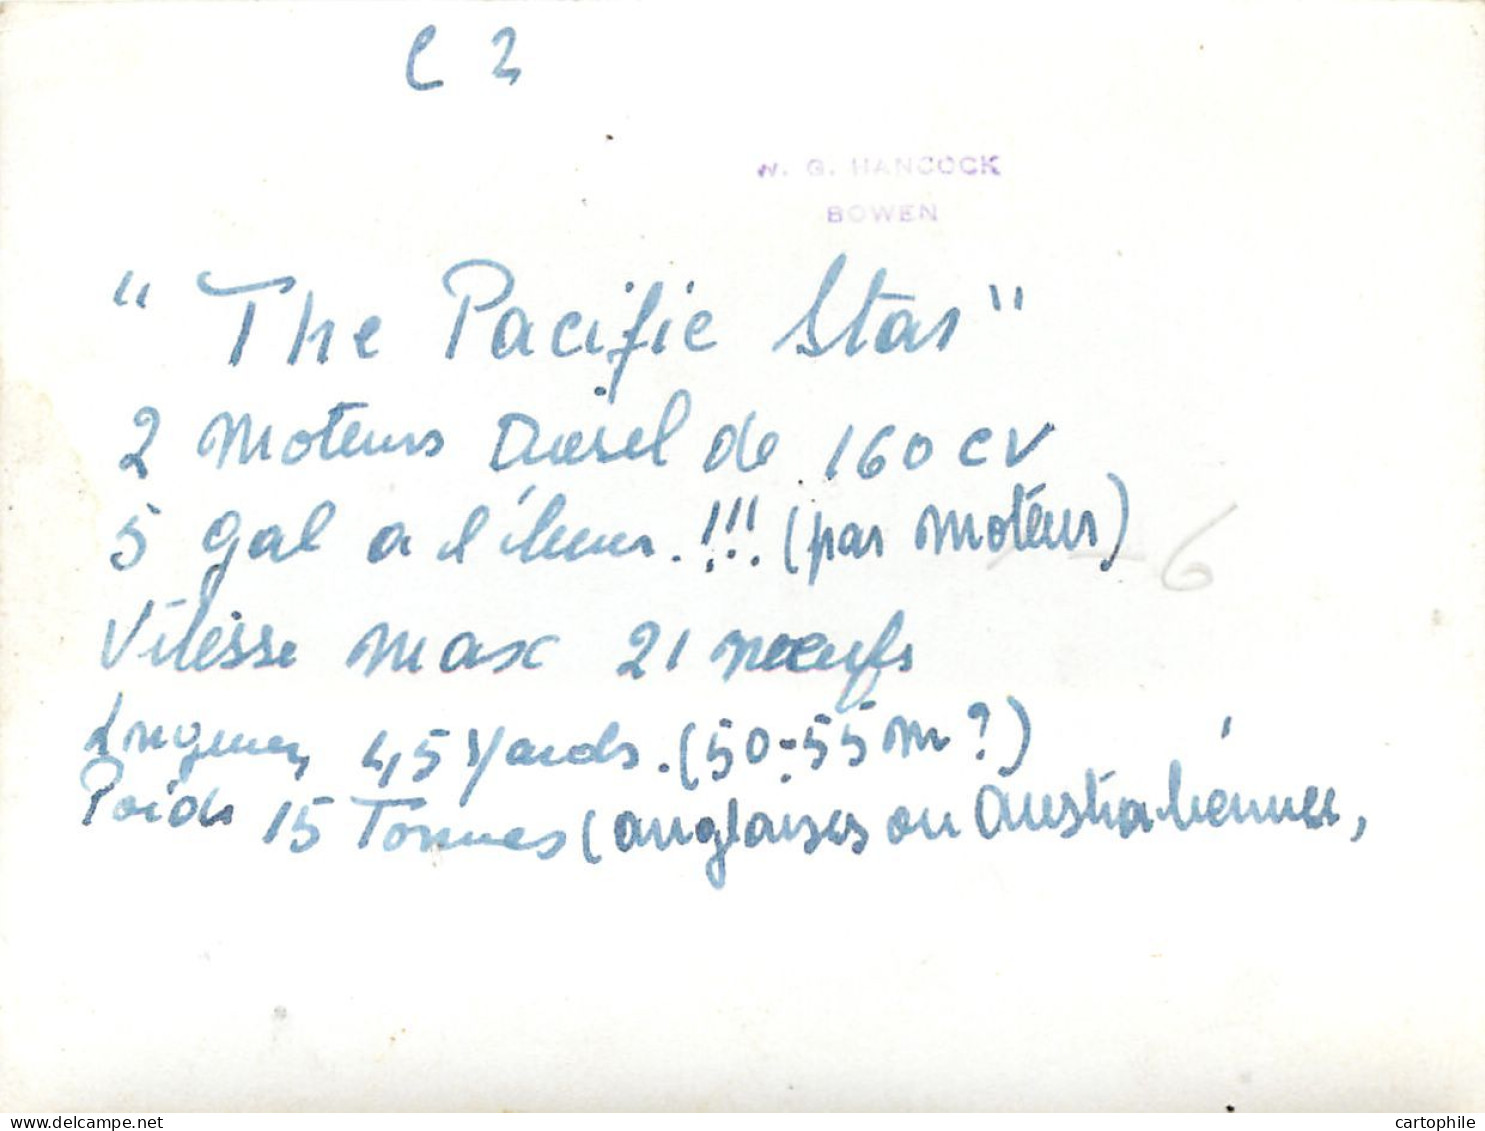 C 2
W. G. HANCOCK
BOWEN
"The Pacific Star"
2 Moteurs Diesel de 160 CV
5 gal a l'heure. !!! (par Moteur)
- 6
Vitesse Max 21 noeufs
Longueur 45 Yards. (50-55 m ?)
Poids 15 Tonnes (anglaises ou Australiennes,
delcampe.net
cartophile